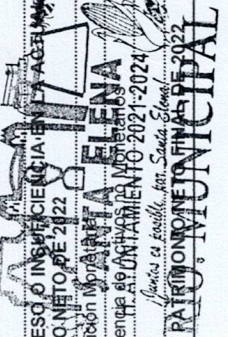 ESO O INSUFICIENCIA EN LA ACTUA
O NETO DE 2022
SANTA ELENA
ición Monetaria
encia de Activos no Monetarios
H. AYUNTAMIENTO 2021-2024
Juntos es posible por Santa Elena!
PATRIMONIO NETO FINAL DE 2022
MUNICIPAL